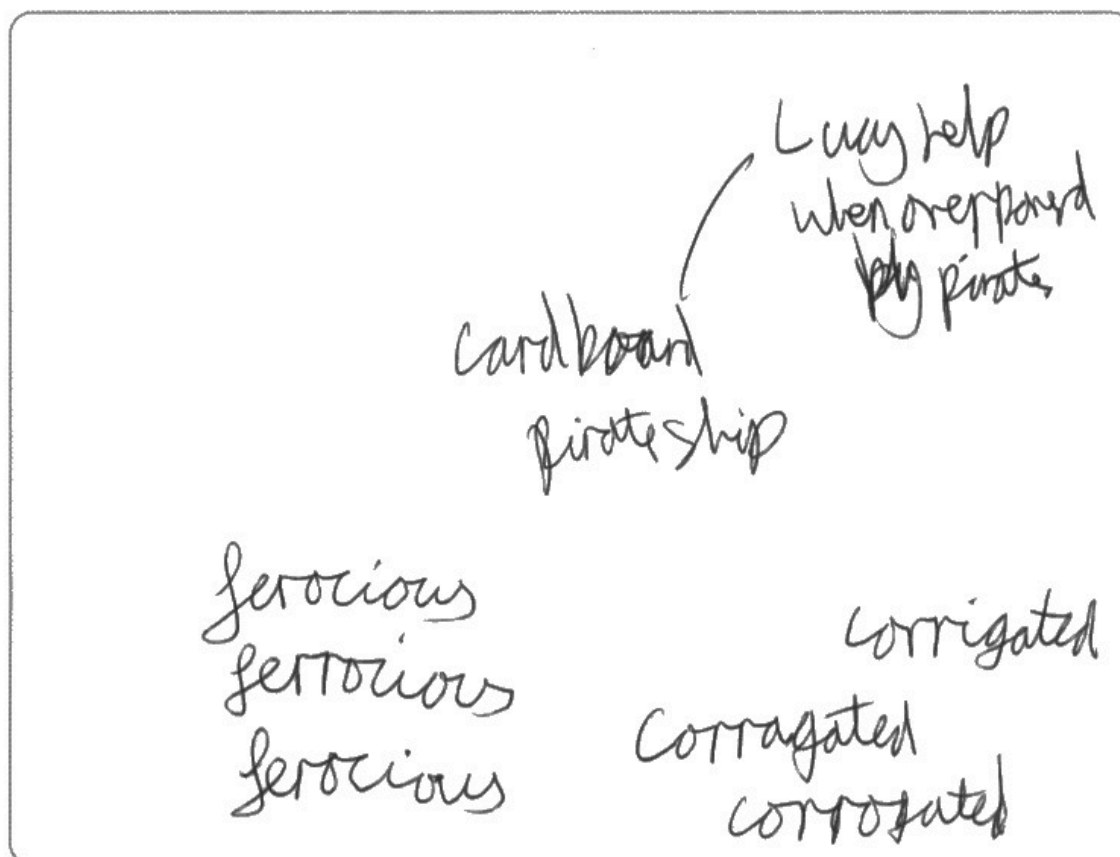 Lucy help
when overpowerd
by pirates
cardboard
pirate ship
ferocious
ferrocious
ferocious
corrigated
Corragated
corrogated